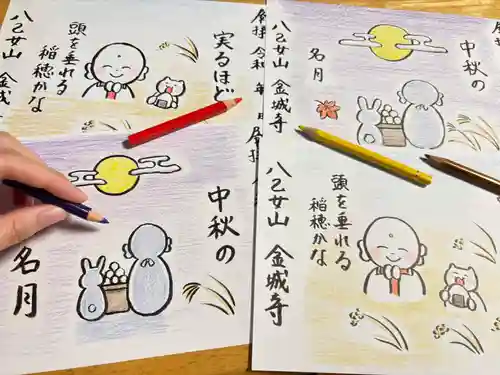 実るほど
頭を垂れる
稲穂かな
八乙女山 金城
中秋の
名月
奉拝 令和 年 月
八乙女山 金城寺
中秋の
名月
八乙女山 金城寺
頭を垂れる
稲穂かな